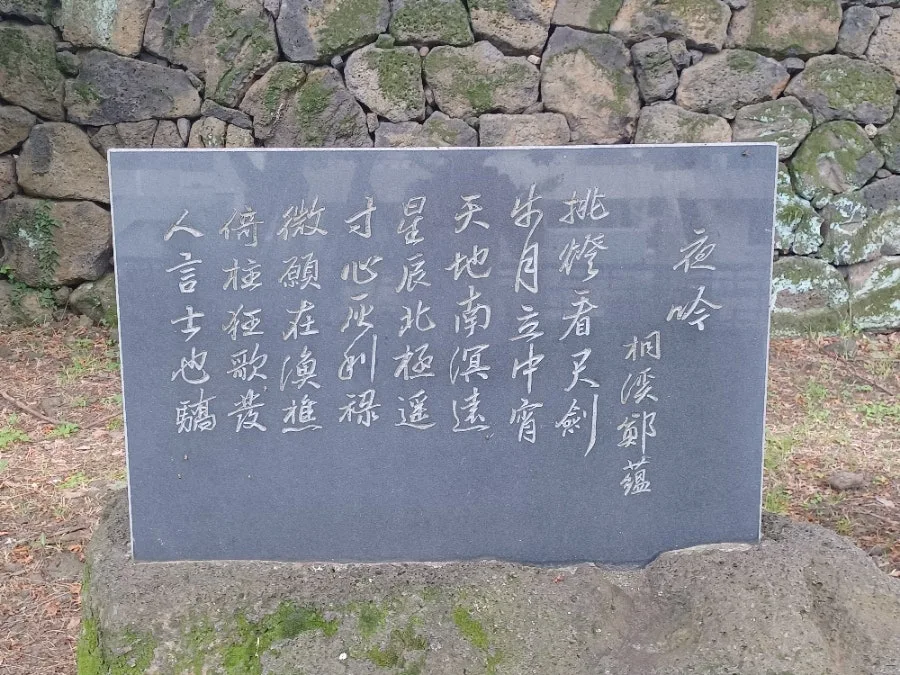 夜吟
桐溪鄭蘊
挑燈看尺劍
步月立中宵
天地南溟遠
星辰北極遥
寸心灰利祿
微願在漁樵
倚柱狂歌發
人言士也驕